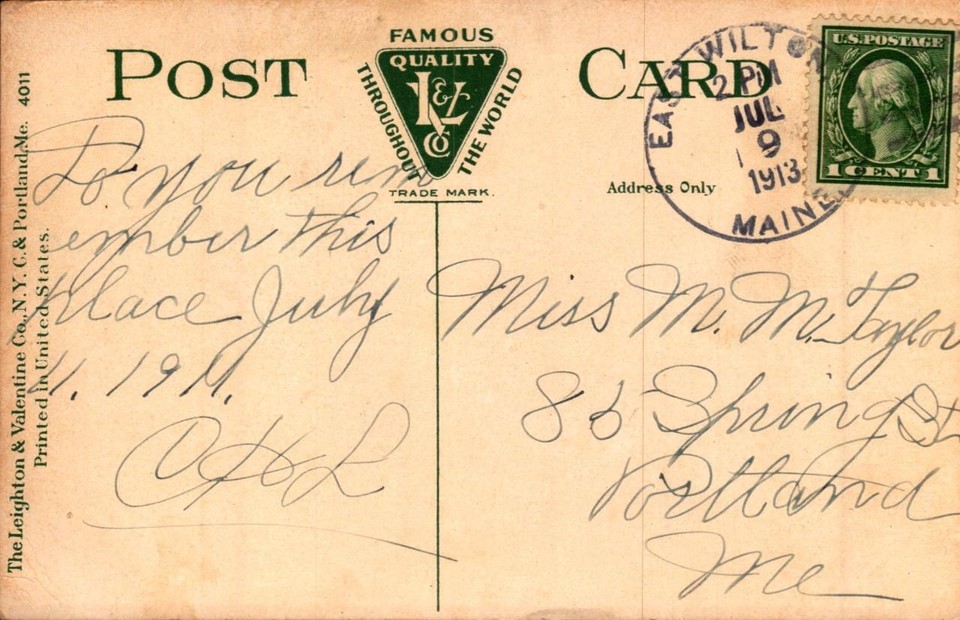 POST CARD
FAMOUS
QUALITY
L&V
Co
THROUGHOUT THE WORLD
TRADE MARK.
Address Only
EAST WILTON
2 PM
JUL
9
1913
MAINE
U.S. POSTAGE
1 CENT 1
The Leighton & Valentine Co., N. Y. C. & Portland, Me. 4011
Printed in United States.
Do you rem
ember this
place July
4. 1911.
CHL
Miss M. M. Taylor
Spring St
Portland
Me